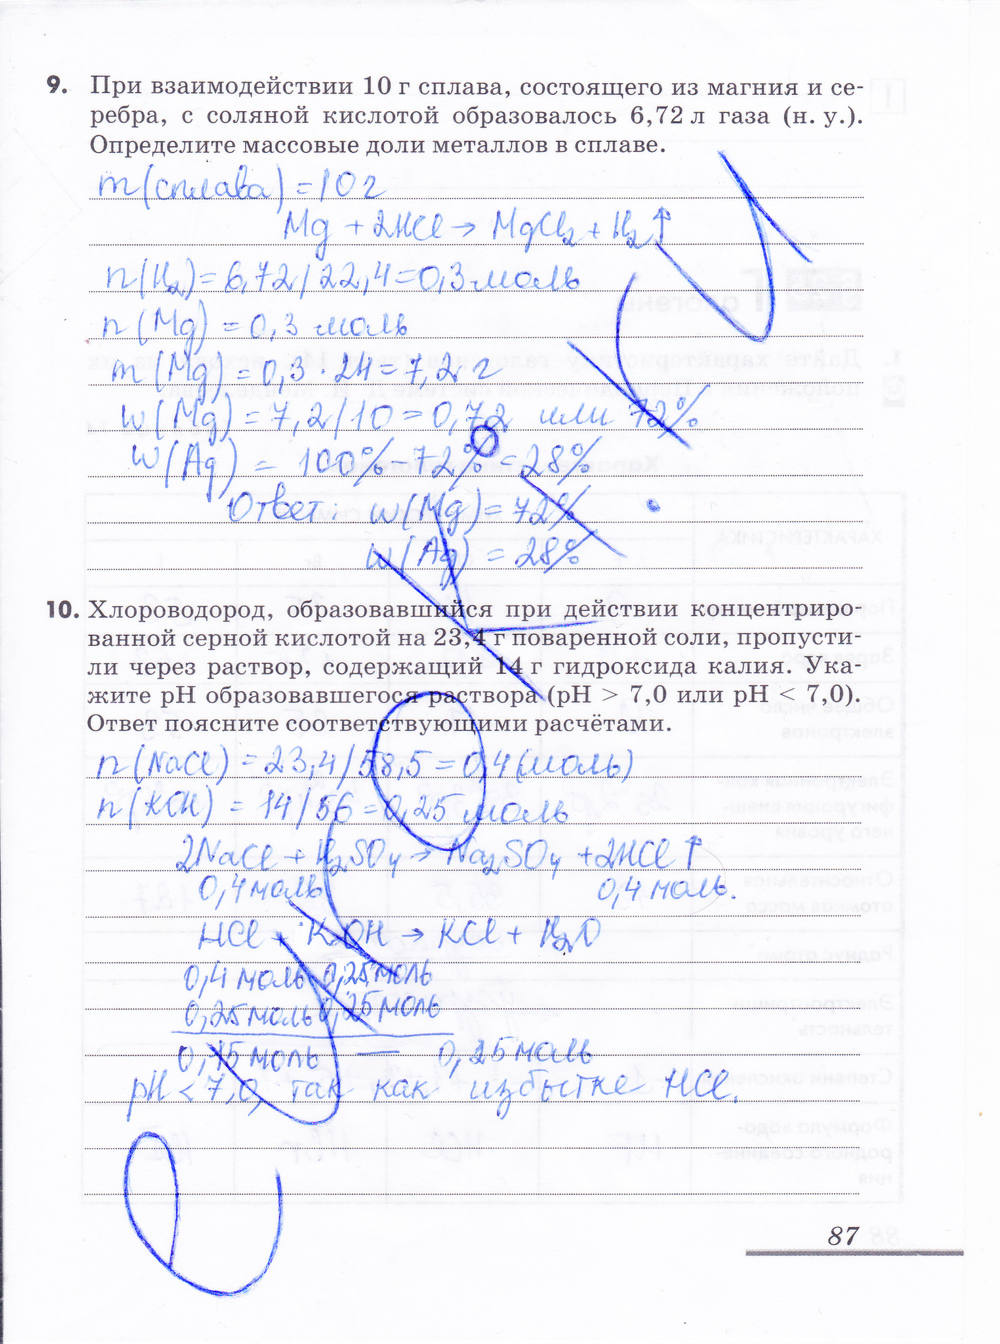 9. При взаимодействии 10 г сплава, состоящего из магния и се-
ребра, с соляной кислотой образовалось 6,72 л газа (н. у.).
Определите массовые доли металлов в сплаве.
m(сплава) = 10 г
Mg + 2HCl → MgCl₂ + H₂↑
n(H₂) = 6,72/22,4 = 0,3 моль
n(Mg) = 0,3 моль
m(Mg) = 0,3 · 24 = 7,2 г
w(Mg) = 7,2/10 = 0,72 или 72%
w(Ag) = 100% - 72% = 28%
Ответ: w(Mg) = 72%
w(Ag) = 28%
10. Хлороводород, образовавшийся при действии концентриро-
ванной серной кислотой на 23,4 г поваренной соли, пропусти-
ли через раствор, содержащий 14 г гидроксида калия. Ука-
жите pH образовавшегося раствора (pH > 7,0 или pH < 7,0).
Ответ поясните соответствующими расчётами.
n(NaCl) = 23,4/58,5 = 0,4 (моль)
n(KOH) = 14/56 = 0,25 моль
2NaCl + H₂SO₄ → Na₂SO₄ + 2HCl↑
0,4 моль 0,4 моль.
HCl + KOH → KCl + H₂O
0,4 моль 0,25 моль
0,25 моль 0,25 моль
0,15 моль — 0,25 моль
pH < 7,0, так как избытке HCl.
87